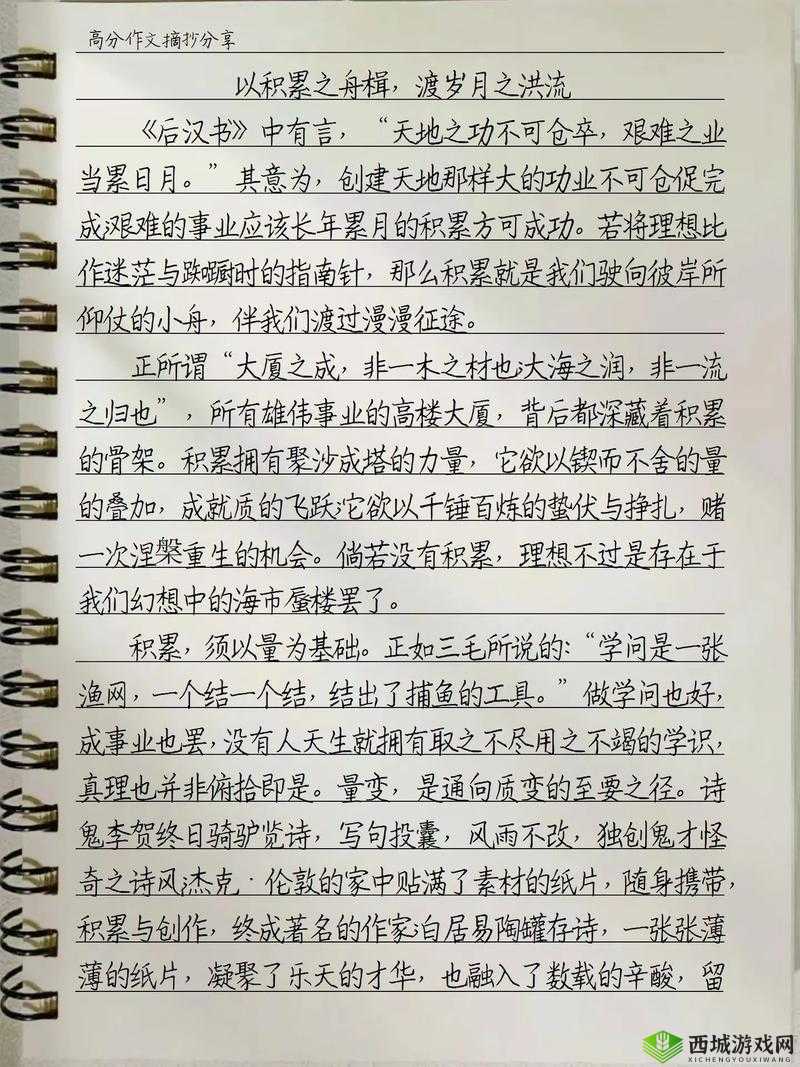 高分作文摘抄分享
以积累之舟楫，渡岁月之洪流
《后汉书》中有言，“天地之功不可仓卒，艰难之业
当累日月。”其意为，创建天地那样大的功业不可仓促完
成艰难的事业应该长年累月的积累方可成功。若将理想比
作迷茫与踟蹰时的指南针，那么积累就是我们驶向彼岸所
仰仗的小舟，伴我们渡过漫漫征途。
正所谓“大厦之成，非一木之材也大海之润，非一流
之归也”，所有雄伟事业的高楼大厦，背后都深藏着积累
的骨架。积累拥有聚沙成塔的力量，它欲以锲而不舍的量
的叠加，成就质的飞跃它欲以千锤百炼的蛰伏与挣扎，赌
一次涅槃重生的机会。倘若没有积累，理想不过是存在于
我们幻想中的海市蜃楼罢了。
积累，须以量为基础。正如三毛所说的：“学问是一张
渔网，一个结一个结，结出了捕鱼的工具。”做学问也好，
成事业也罢，没有人天生就拥有取之不尽用之不竭的学识，
真理也并非俯拾即是。量变，是通向质变的至要之径。诗
鬼李贺终日骑驴览诗，写句投囊，风雨不改，独创鬼才怪
奇之诗风杰克·伦敦的家中贴满了素材的纸片，随身携带，
积累与创作，终成著名的作家白居易陶罐存诗，一张张薄
薄的纸片，凝聚了乐天的才华，也融入了数载的辛酸，留
西城游戏网
XICHENGYOUXIWANG